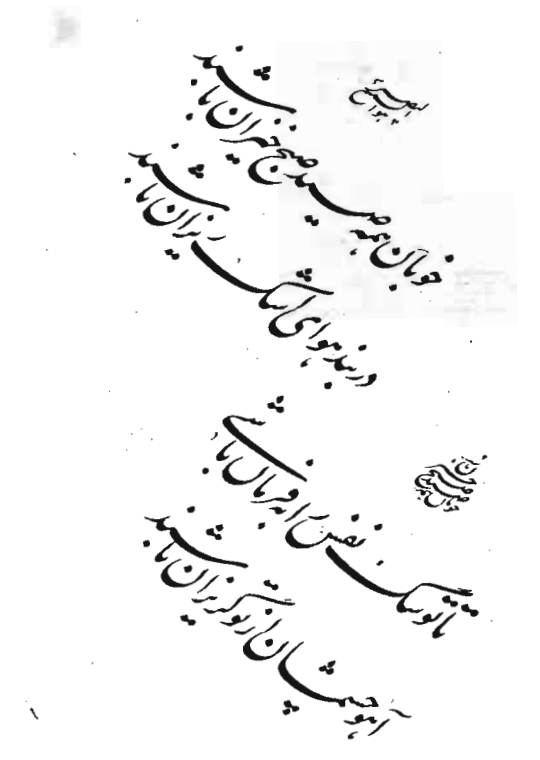 خوبان همه صید صبح خیزان باشند
در بند هوای اشک ریزان باشند
تا تو سگ نفس را به فرمان باشی
آهو چشمان از تو گریزان باشند
۱